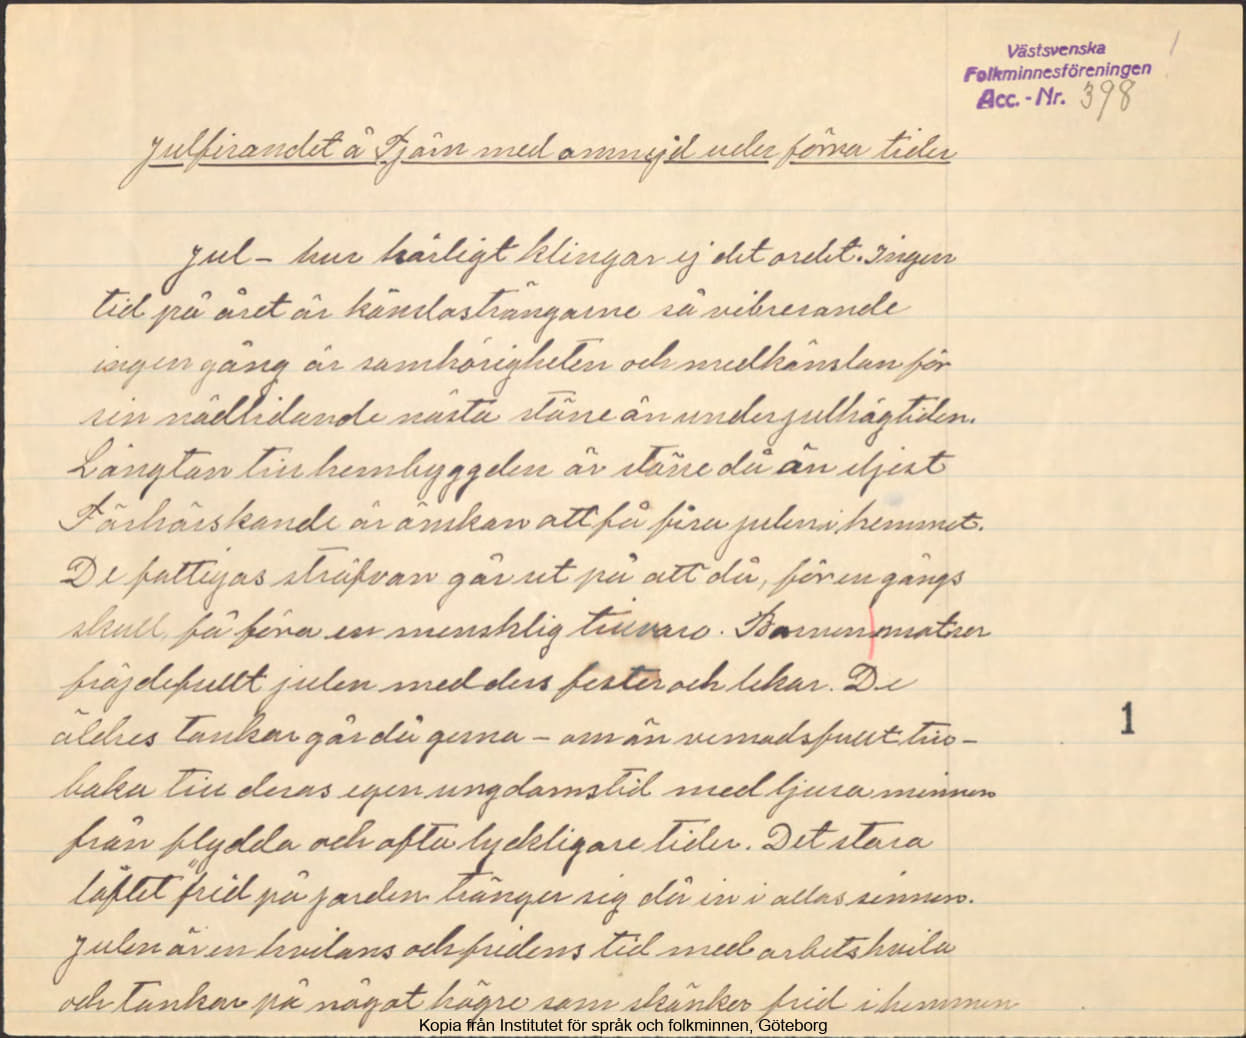 Västsvenska
Folkminnesföreningen
Acc.-Nr. 398
Julfirandet å Tjörn med omnejd under förra tider
Jul – hur härligt klingar ej det ordet. Ingen
tid på året är känslosträngarne så vibrerande
ingen gång är samhörigheten och medkänslan för
sin nödlidande nästa större än under julhögtiden.
Längtan till hembyggden är större då än eljest
Förhärskande är önskan att få fira julen i hemmet.
De fattigas sträfvan går ut på att då, för en gångs
skull, få föra en mensklig tillvaro. Barnen motser
fröjdefullt julen med dess fester och lekar. De
äldres tankar går då gerna – om än vemodsfullt till-
baka till deras egen ungdomstid med ljusa minnen
från flydda och ofta lyckligare tider. Det stora
löftet "frid på jorden tränger sig då in i allas sinnen.
Julen är en hvilans och fridens tid med arbetshvila
och tankar på något högre som skänker frid i hemmen
1
Kopia från Institutet för språk och folkminnen, Göteborg